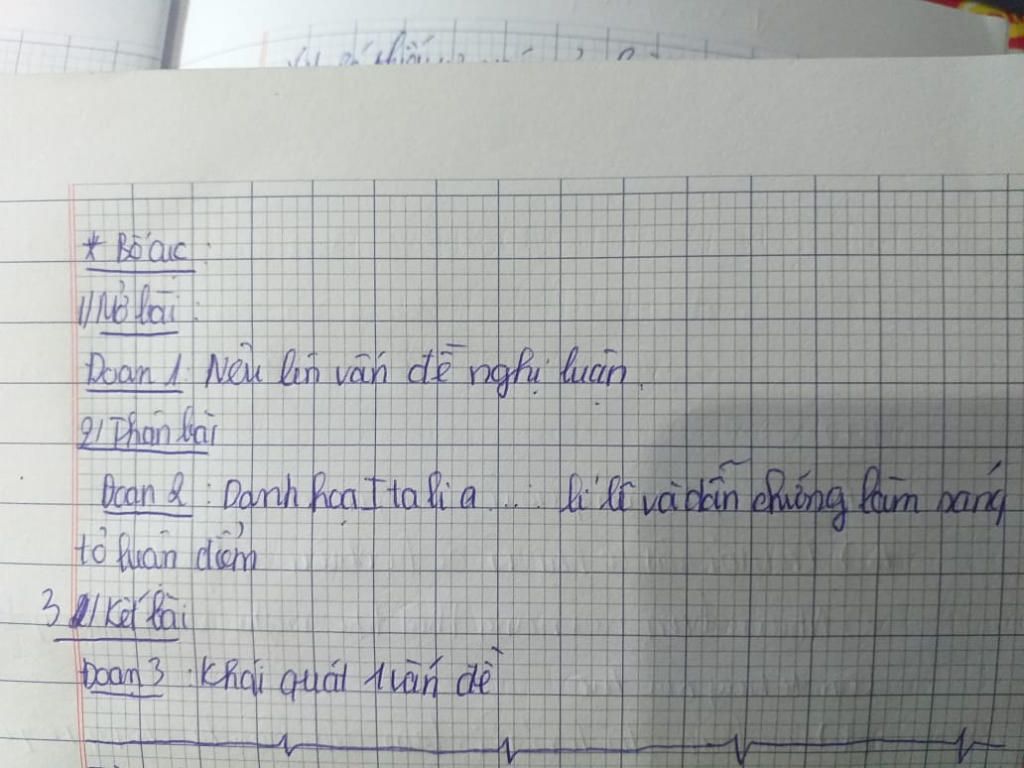 * Bố cục:
1/ Mở bài:
Đoạn 1: Nêu lên vấn đề nghị luận.
2/ Thân bài
Đoạn 2: Danh họa Italia ... lí lẽ và dẫn chứng làm sáng
tỏ luận điểm
3/ Kết bài
Đoạn 3: Khái quát vấn đề